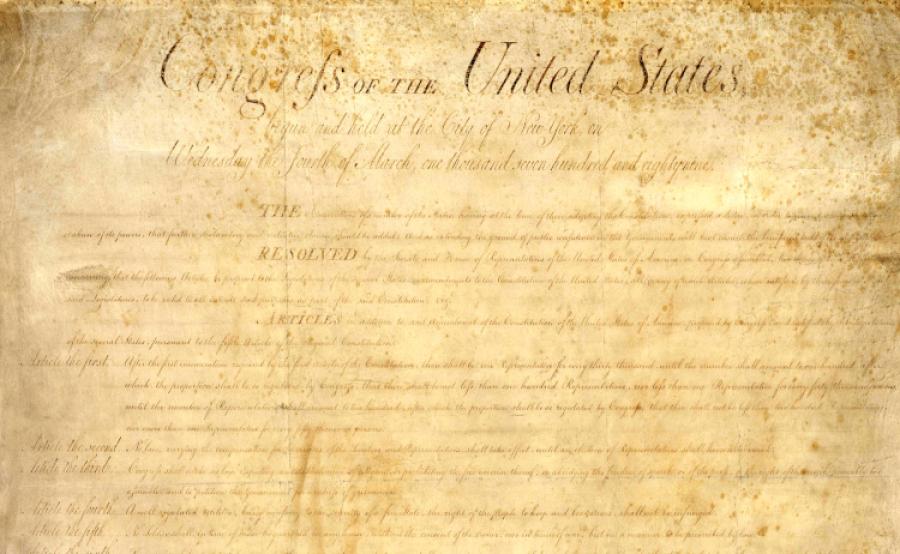 Congress OF THE United States,
begun and held at the City of New York, on
Wednesday the fourth of March, one thousand seven hundred and eighty nine.
THE Conventions of a number of the States, having at the time of their adopting the Constitution, expressed a desire, in order to prevent
abuse of its powers, that further declaratory and restrictive clauses should be added: And as extending the ground of public confidence in the Government, will best
RESOLVED by the Senate and House of Representatives of the United States of America, in Congress assembled, two
concurring, that the following Articles be proposed to the Legislatures of the several States, as amendments to the Constitution of the United States, all, or any of which Articles, when ratified by
said Legislatures, to be valid to all intents and purposes, as part of the said Constitution; vizt.
ARTICLES in addition to, and Amendment of the Constitution of the United States of America, proposed by Congress, and ratified by the Legislatures
of the several States, pursuant to the fifth Article of the original Constitution.
Article the first. After the first enumeration required by the first Article of the Constitution, there shall be one Representative for every thirty thousand, until the number shall amount to one hundred, after
which, the proportion shall be so regulated by Congress, that there shall be not less than one hundred Representatives, nor less than one Representative for every forty thousand persons,
until the number of Representatives shall amount to two hundred, after which, the proportion shall be so regulated by Congress, that there shall not be less than two hundred
nor more than one Representative for every fifty thousand persons.
Article the second. No law, varying the compensation for the services of the Senators and Representatives, shall take effect, until an election of Representatives shall have intervened.
Article the third. Congress shall make no law respecting an establishment of religion, or prohibiting the free exercise thereof; or abridging the freedom of speech, or of the press; or the right of the people peaceably to
assemble, and to petition the Government for a redress of grievances.
Article the fourth. A well regulated militia, being necessary to the security of a free State, the right of the people to keep and bear arms, shall not be infringed.
Article the fifth. No Soldier shall, in time of peace be quartered in any house, without the consent of the owner, nor in time of war, but in a manner to be prescribed by law.